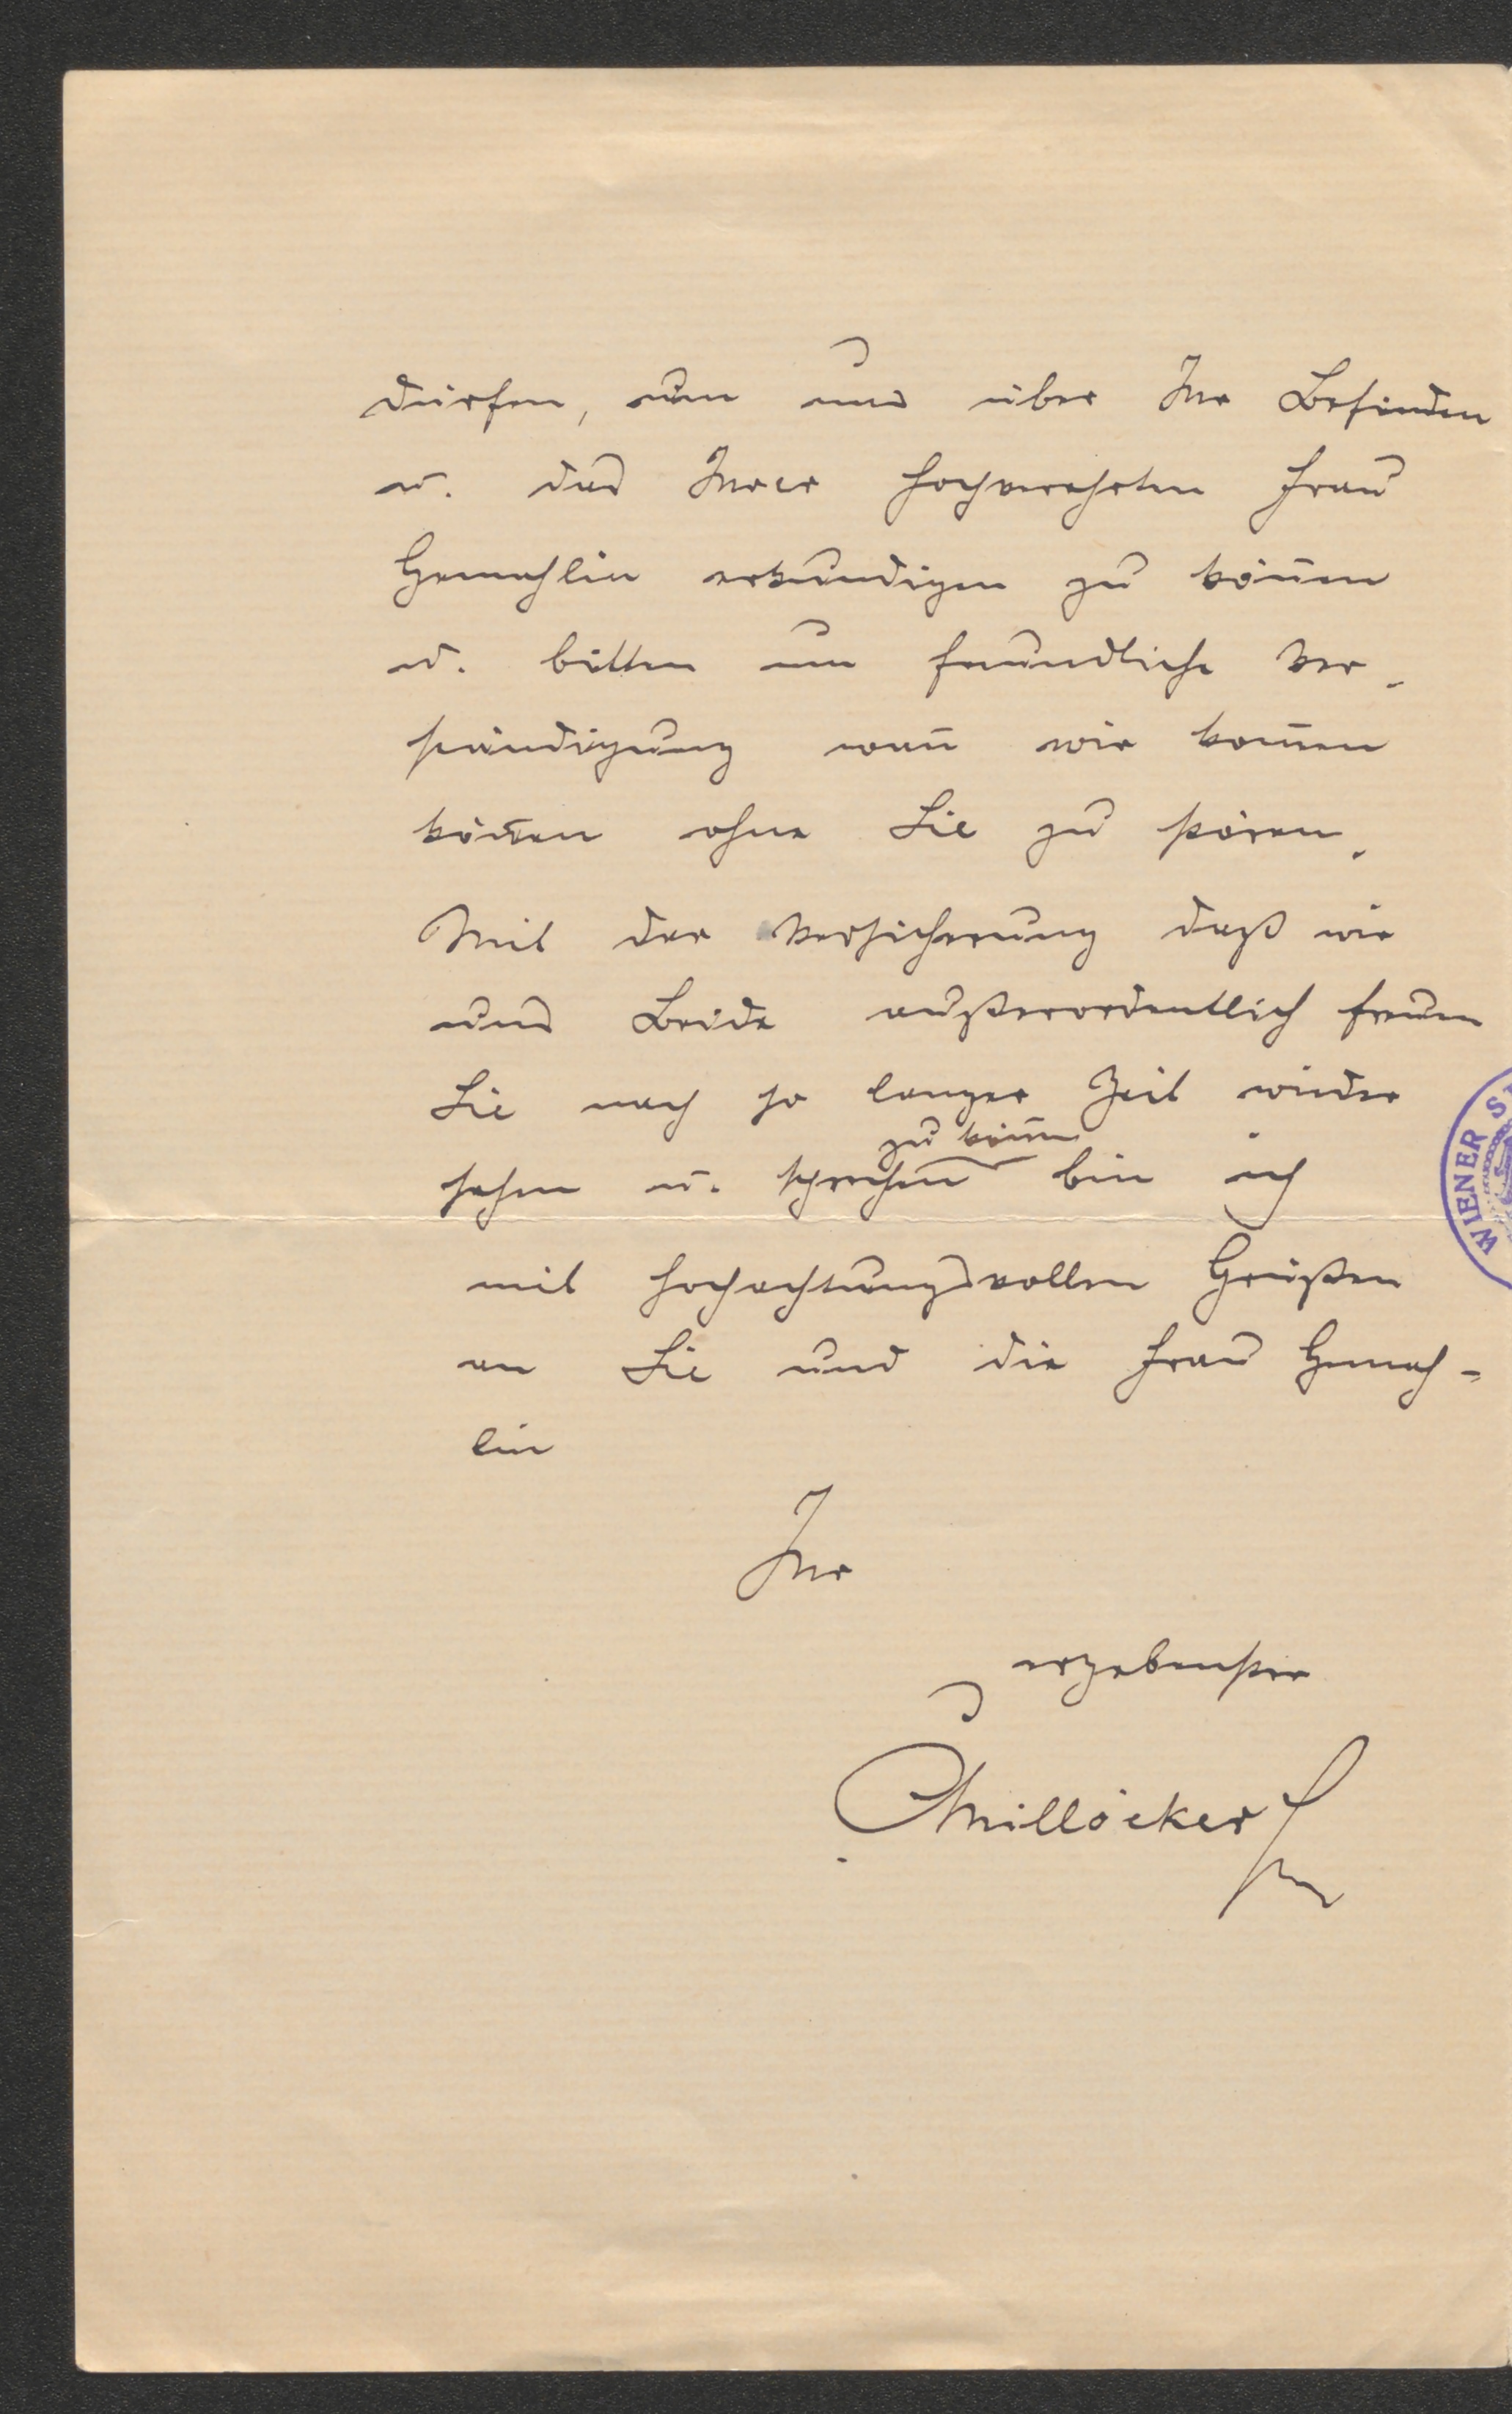 dürfen, um uns über Ihr Befinden
u. das Ihrer hochverehrten Frau
Gemahlin erkundigen zu kön̄en
u. bitten um freundliche Ver-
ständigung wan̄ wir kom̄en
kön̄en ohne Sie zu stören.
Mit der Versicherung daß wir
uns Beide außerordentlich freuen
Sie nach so langer Zeit wieder
zu kön̄en
sehen u. sprechen bin ich
mit hochachtungsvollen Grüßen
an Sie und die Frau Gemah-
lin
Ihr
ergebenster
CMillöcker
WIENER S